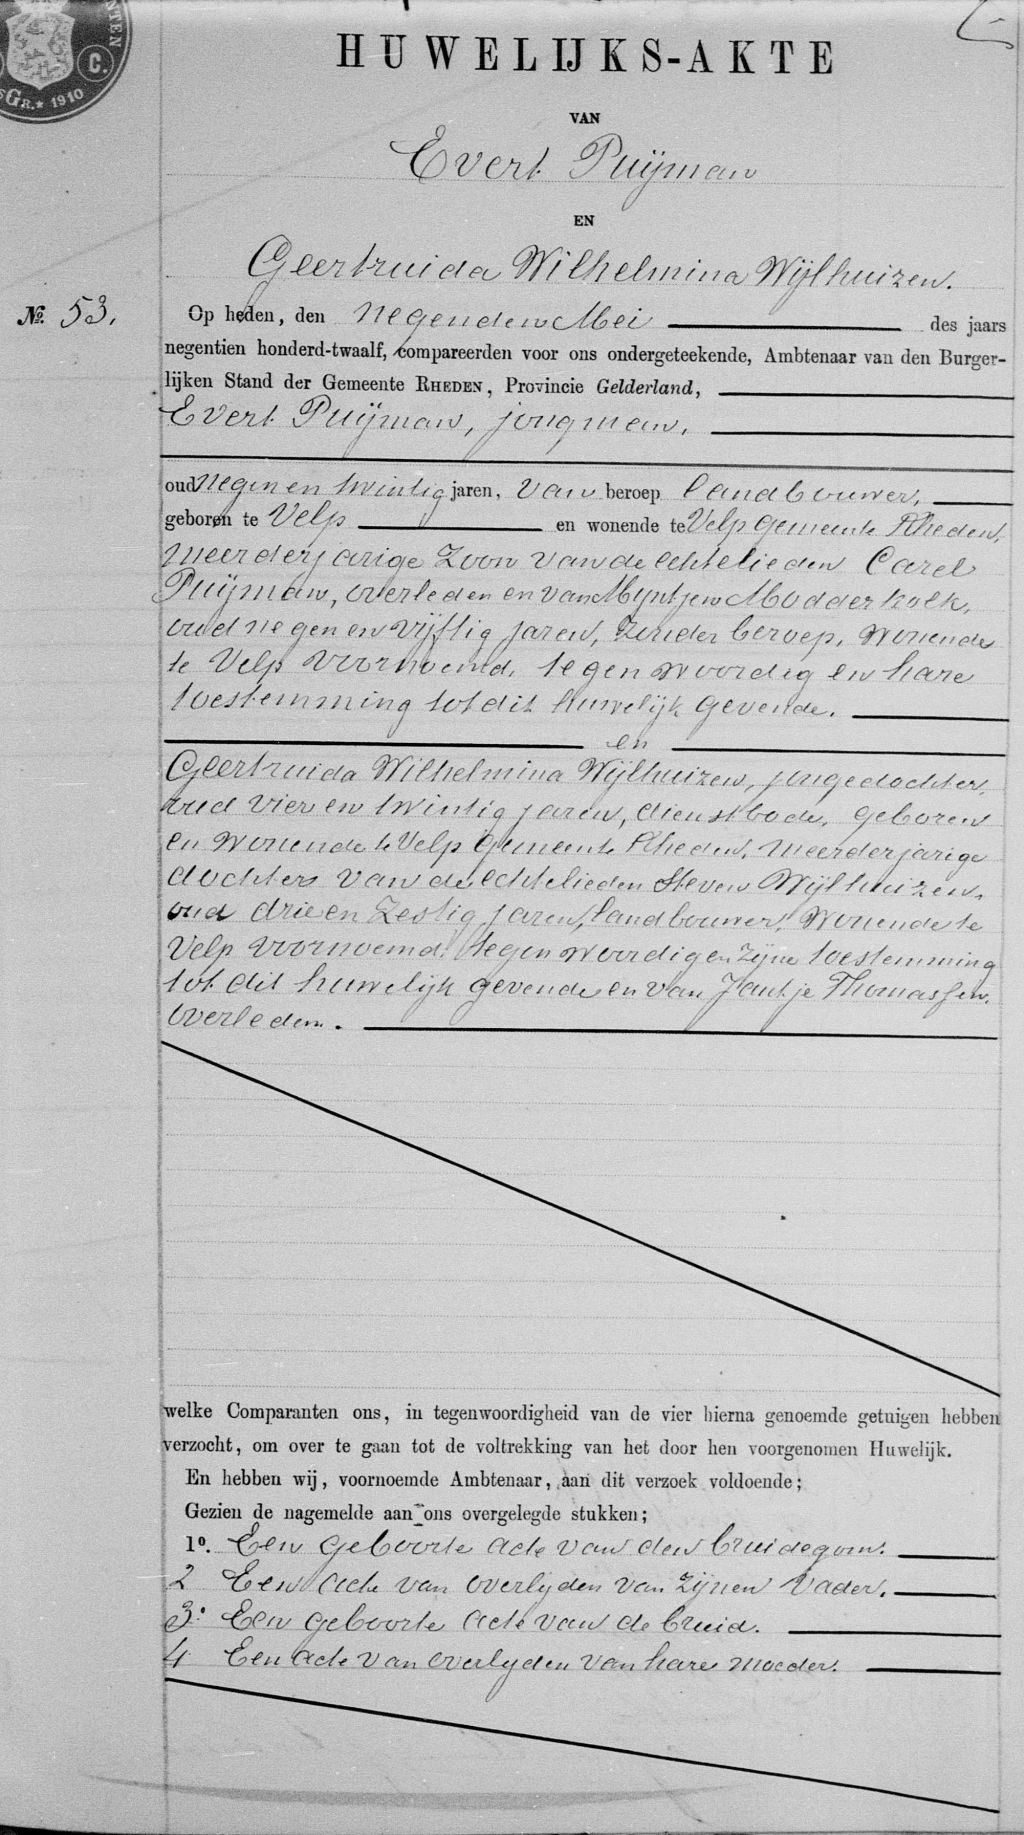 NTEN
C.
GR.* 1910
HUWELIJKS-AKTE
VAN
Evert Puijman
EN
Geertruida Wilhelmina Wijlhuizen.
No. 53.
Op heden, den negenden Mei des jaars
negentien honderd-twaalf, compareerden voor ons ondergeteekende, Ambtenaar van den Burger-
lijken Stand der Gemeente RHEDEN, Provincie Gelderland,
Evert Puijman, jongman,
oud negen en twintig jaren, van beroep landbouwer,
geboren te Velp en wonende te Velp gemeente Rheden,
meerderjarige zoon van de echtelieden Carel
Puijman, overleden en van Myntjen Modderkolk,
oud negen en vijftig jaren, zonder beroep, wonende
te Velp voornoemd, tegenwoordig en hare
toestemming tot dit huwelijk gevende.
en
Geertruida Wilhelmina Wijlhuizen, jongedochter,
oud vier en twintig jaren, dienstbode, geboren
en wonende te Velp gemeente Rheden, meerderjarige
dochter van de echtelieden Steven Wijlhuizen,
oud drie en zestig jaren, landbouwer, wonende te
Velp voornoemd, tegenwoordig en zijne toestemming
tot dit huwelijk gevende en van Jantje Thomassen,
overleden.
welke Comparanten ons, in tegenwoordigheid van de vier hierna genoemde getuigen hebben
verzocht, om over te gaan tot de voltrekking van het door hen voorgenomen Huwelijk.
En hebben wij, voornoemde Ambtenaar, aan dit verzoek voldoende;
Gezien de nagemelde aan ons overgelegde stukken;
1o. Een geboorte acte van den bruidegom.
2 Een acte van overlijden van zijnen vader.
3o Een geboorte acte van de bruid.
4 Een acte van overlijden van hare moeder.